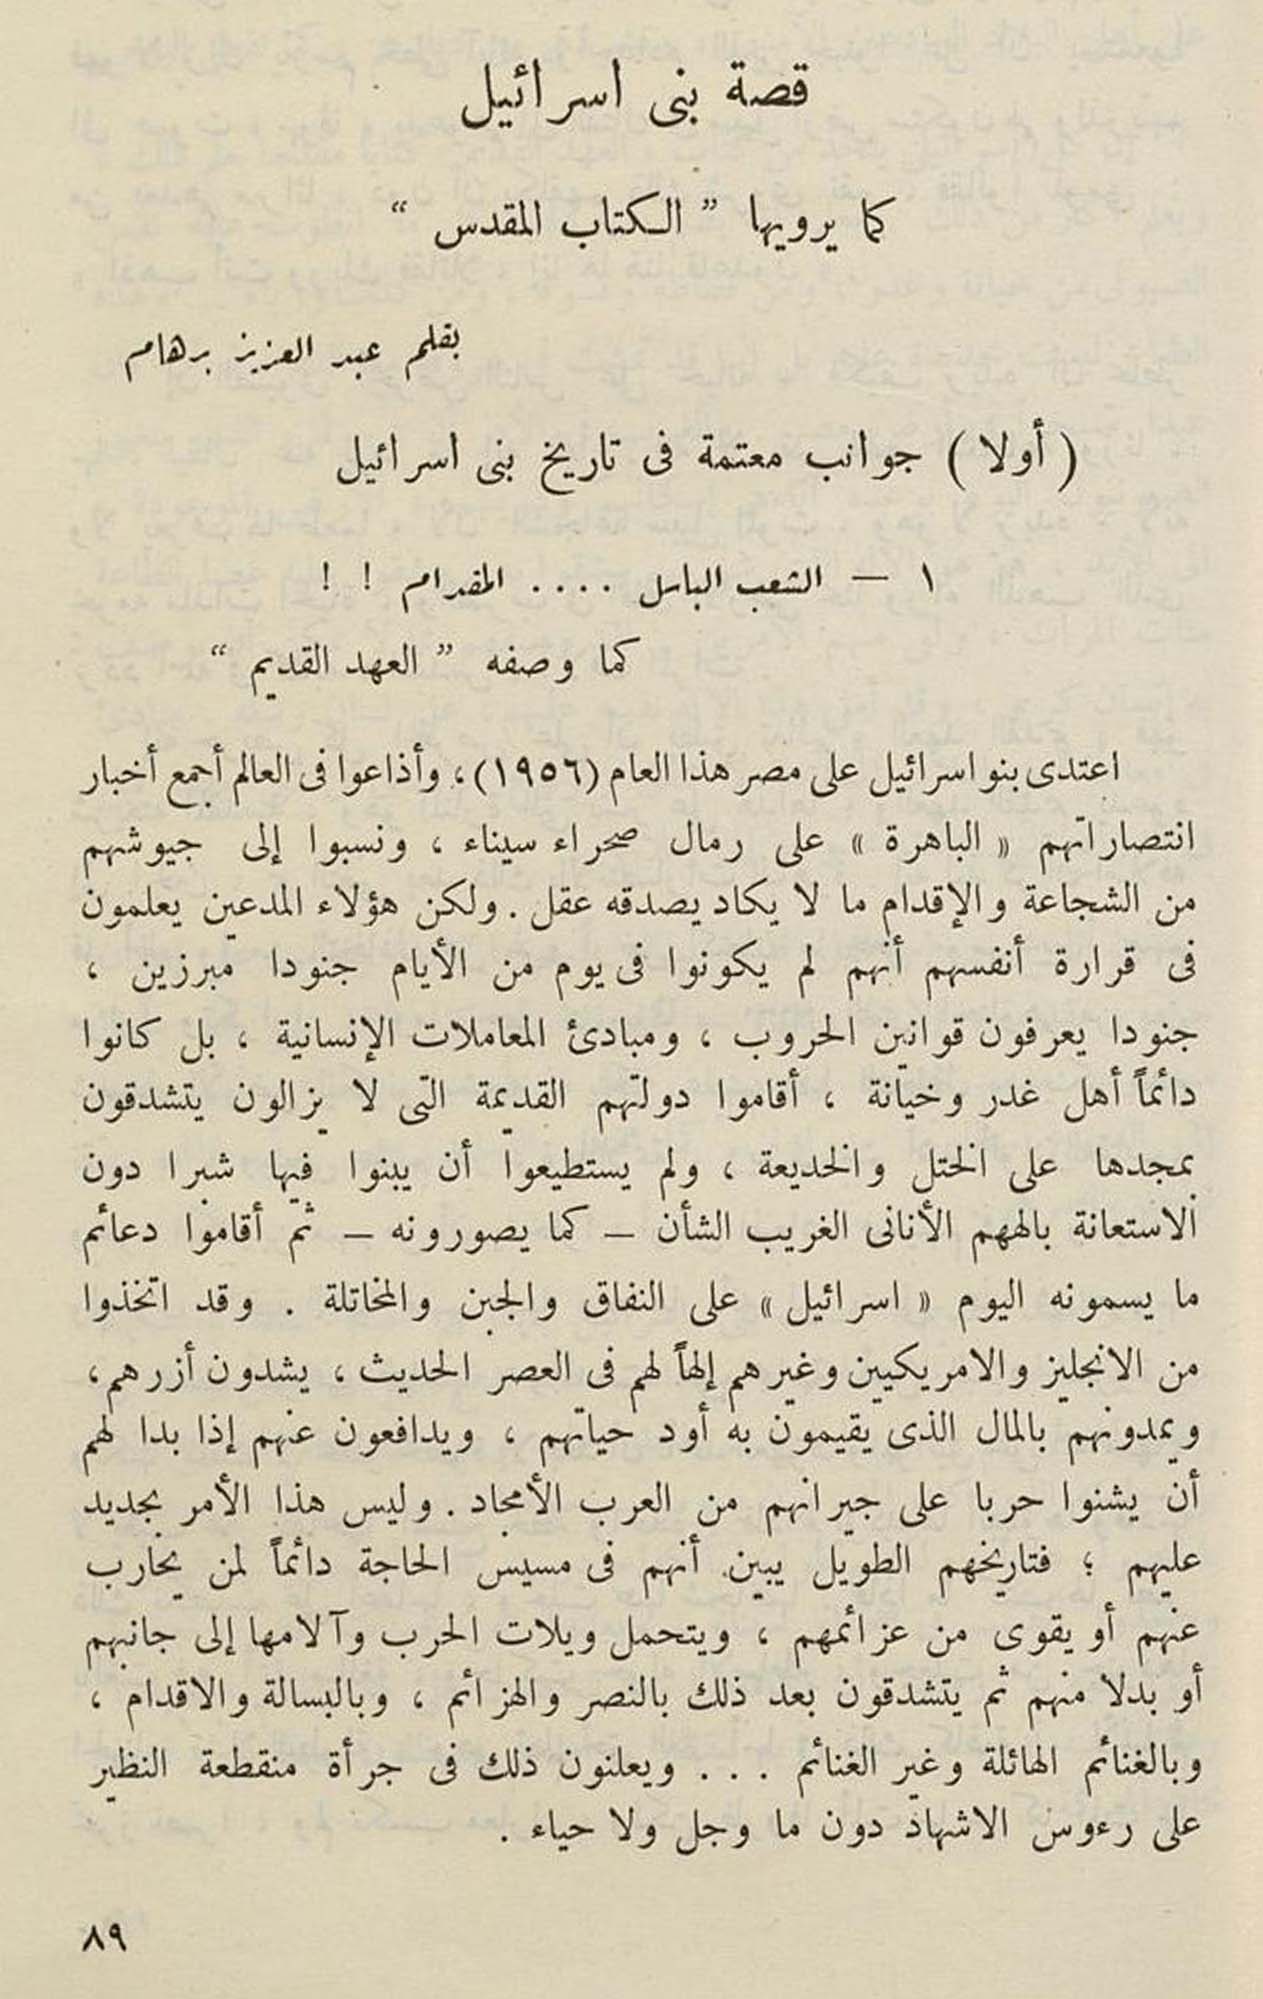 قصة بنى اسرائيل
كما يرويها ” الكتاب المقدس “
بقلم عبد العزيز برهام
( أولا ) جوانب معتمة فى تاريخ بنى اسرائيل
١ — الشعب الباسل .... المقدام ! !
كما وصفه ” العهد القديم “
اعتدى بنو اسرائيل على مصر هذا العام (١٩٥٦) ، وأذاعوا فى العالم أجمع أخبار
انتصاراتهم « الباهرة » على رمال صحراء سيناء ، ونسبوا إلى جيوشهم
من الشجاعة والإقدام ما لا يكاد يصدقه عقل . ولكن هؤلاء المدعين يعلمون
فى قرارة أنفسهم أنهم لم يكونوا فى يوم من الأيام جنودا مبرزين ،
جنودا يعرفون قوانين الحروب ، ومبادئ المعاملات الإنسانية ، بل كانوا
دائماً أهل غدر وخيانة ، أقاموا دولتهم القديمة التى لا يزالون يتشدقون
بمجدها على الختل والخديعة ، ولم يستطيعوا أن يبنوا فيها شبرا دون
الاستعانة بالههم الأنانى الغريب الشأن — كما يصورونه — ثم أقاموا دعائم
ما يسمونه اليوم « اسرائيل » على النفاق والجبن والمخاتلة . وقد اتخذوا
من الانجليز والامريكيين وغيرهم إلهاً لهم فى العصر الحديث ، يشدون أزرهم ،
ويمدونهم بالمال الذى يقيمون به أود حياتهم ، ويدافعون عنهم إذا بدا لهم
أن يشنوا حربا على جيرانهم من العرب الأمجاد . وليس هذا الأمر بجديد
عليهم ؛ فتاريخهم الطويل يبين أنهم فى مسيس الحاجة دائماً لمن يحارب
عنهم أو يقوى من عزائمهم ، ويتحمل ويلات الحرب وآلامها إلى جانبهم
أو بدلا منهم ثم يتشدقون بعد ذلك بالنصر والهزائم ، وبالبسالة والاقدام ،
وبالغنائم الهائلة وغير الغنائم ... ويعلنون ذلك فى جرأة منقطعة النظير
على رءوس الاشهاد دون ما وجل ولا حياء .
٨٩